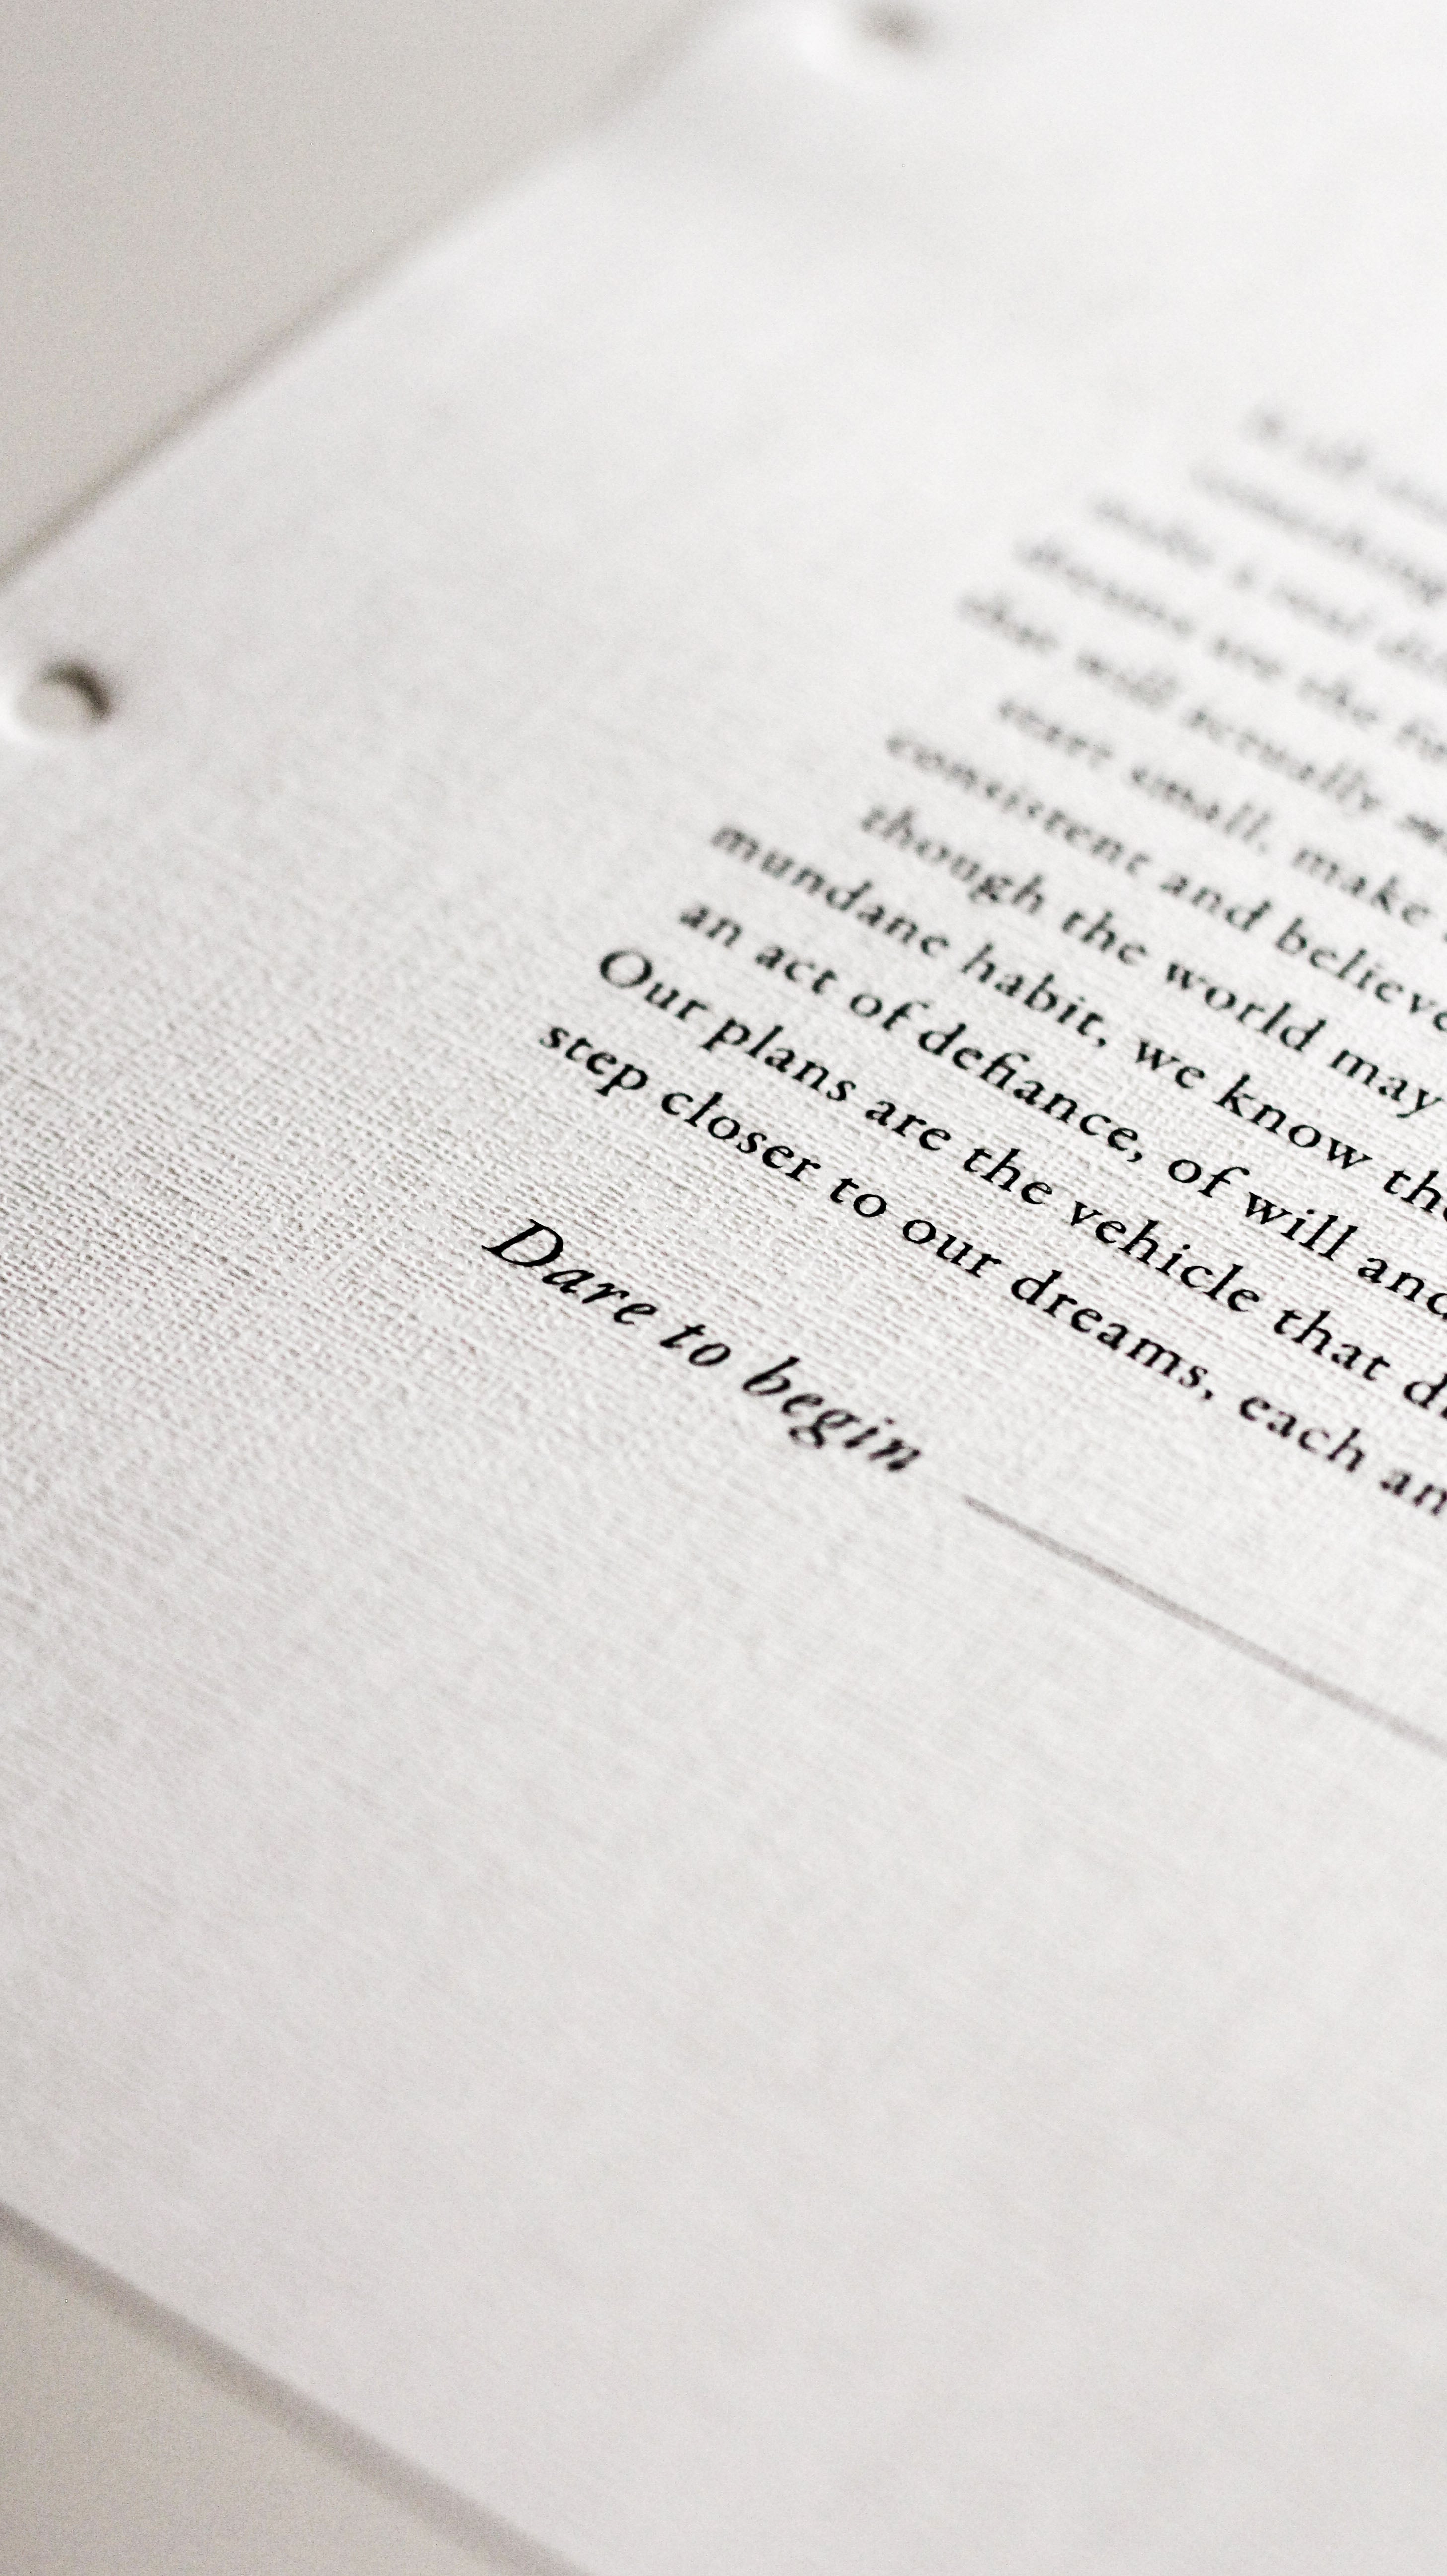 something
make a real
that will actually
start small, make
consistent and believe
though the world may
mundane habit, we know
an act of defiance, of will and
Our plans are the vehicle that
step closer to our dreams, each
Dare to begin